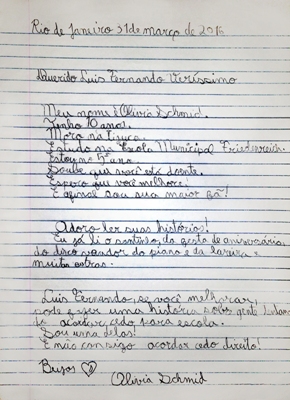 Rio de Janeiro 31 de março de 2016
Querido Luis Fernando Veríssimo
Meu nome é Olivia Schmid.
Tenho 10 anos.
Moro na tijuca.
Estudo na Escola Municipal Friedenreich.
Estou no 5º ano.
Soube que você está doente.
Espero que você melhore!
E afinal sou sua maior fã!
Adoro ler suas histórias!
Eu já li o santinho, da festa de aniversário,
do disco voador do piano e da
muitas outras.
Luis Fernando, se você melhorar,
pode fazer uma história sobre gente
acordar cedo para escola.
Sou uma delas!
E não consigo acordar cedo direito!
Beijos
Olivia Schmid